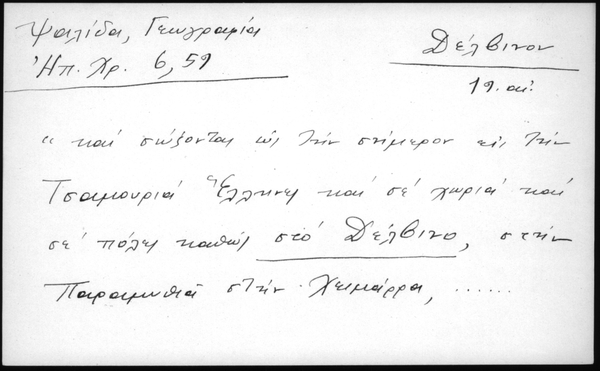 Ψαλίδα, Γεωγραφία
Ἠπ. Χρ. 6, 59
Δέλβινον
19. αἰ.
"καί σώζονται ὡς τήν σήμερον εἰς τήν
Τσαμουριά Ἕλληνες καί σέ χωριά καί
σέ πόλες καθώς στό Δέλβινο, στήν
Παραμυθιά στήν Χειμάρρα, ......